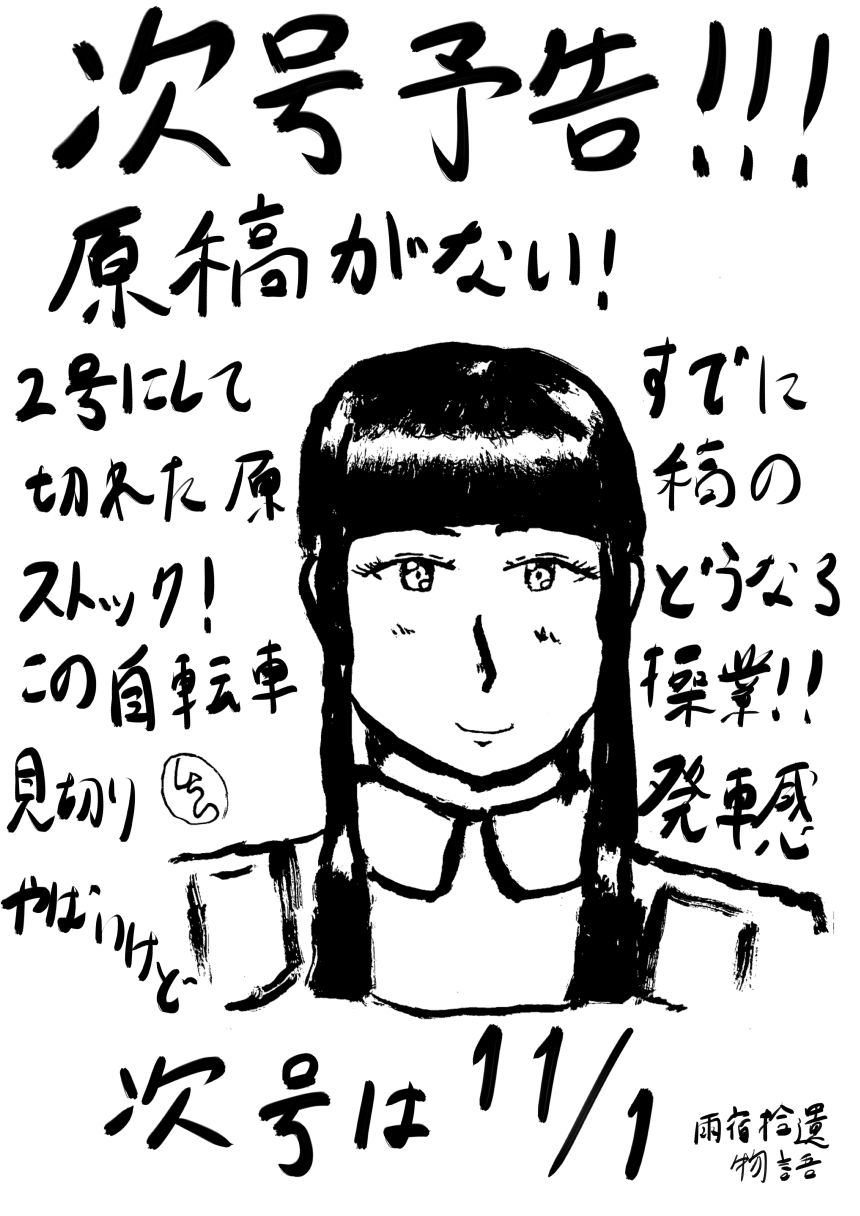 次号予告!!!
原稿がない!
2号にして すでに
切れた原 稿の
ストック! どうなる
この自転車 操業!!
見切り 発車感
やばいけど
次号は 11/1
雨宿拾遺
物語